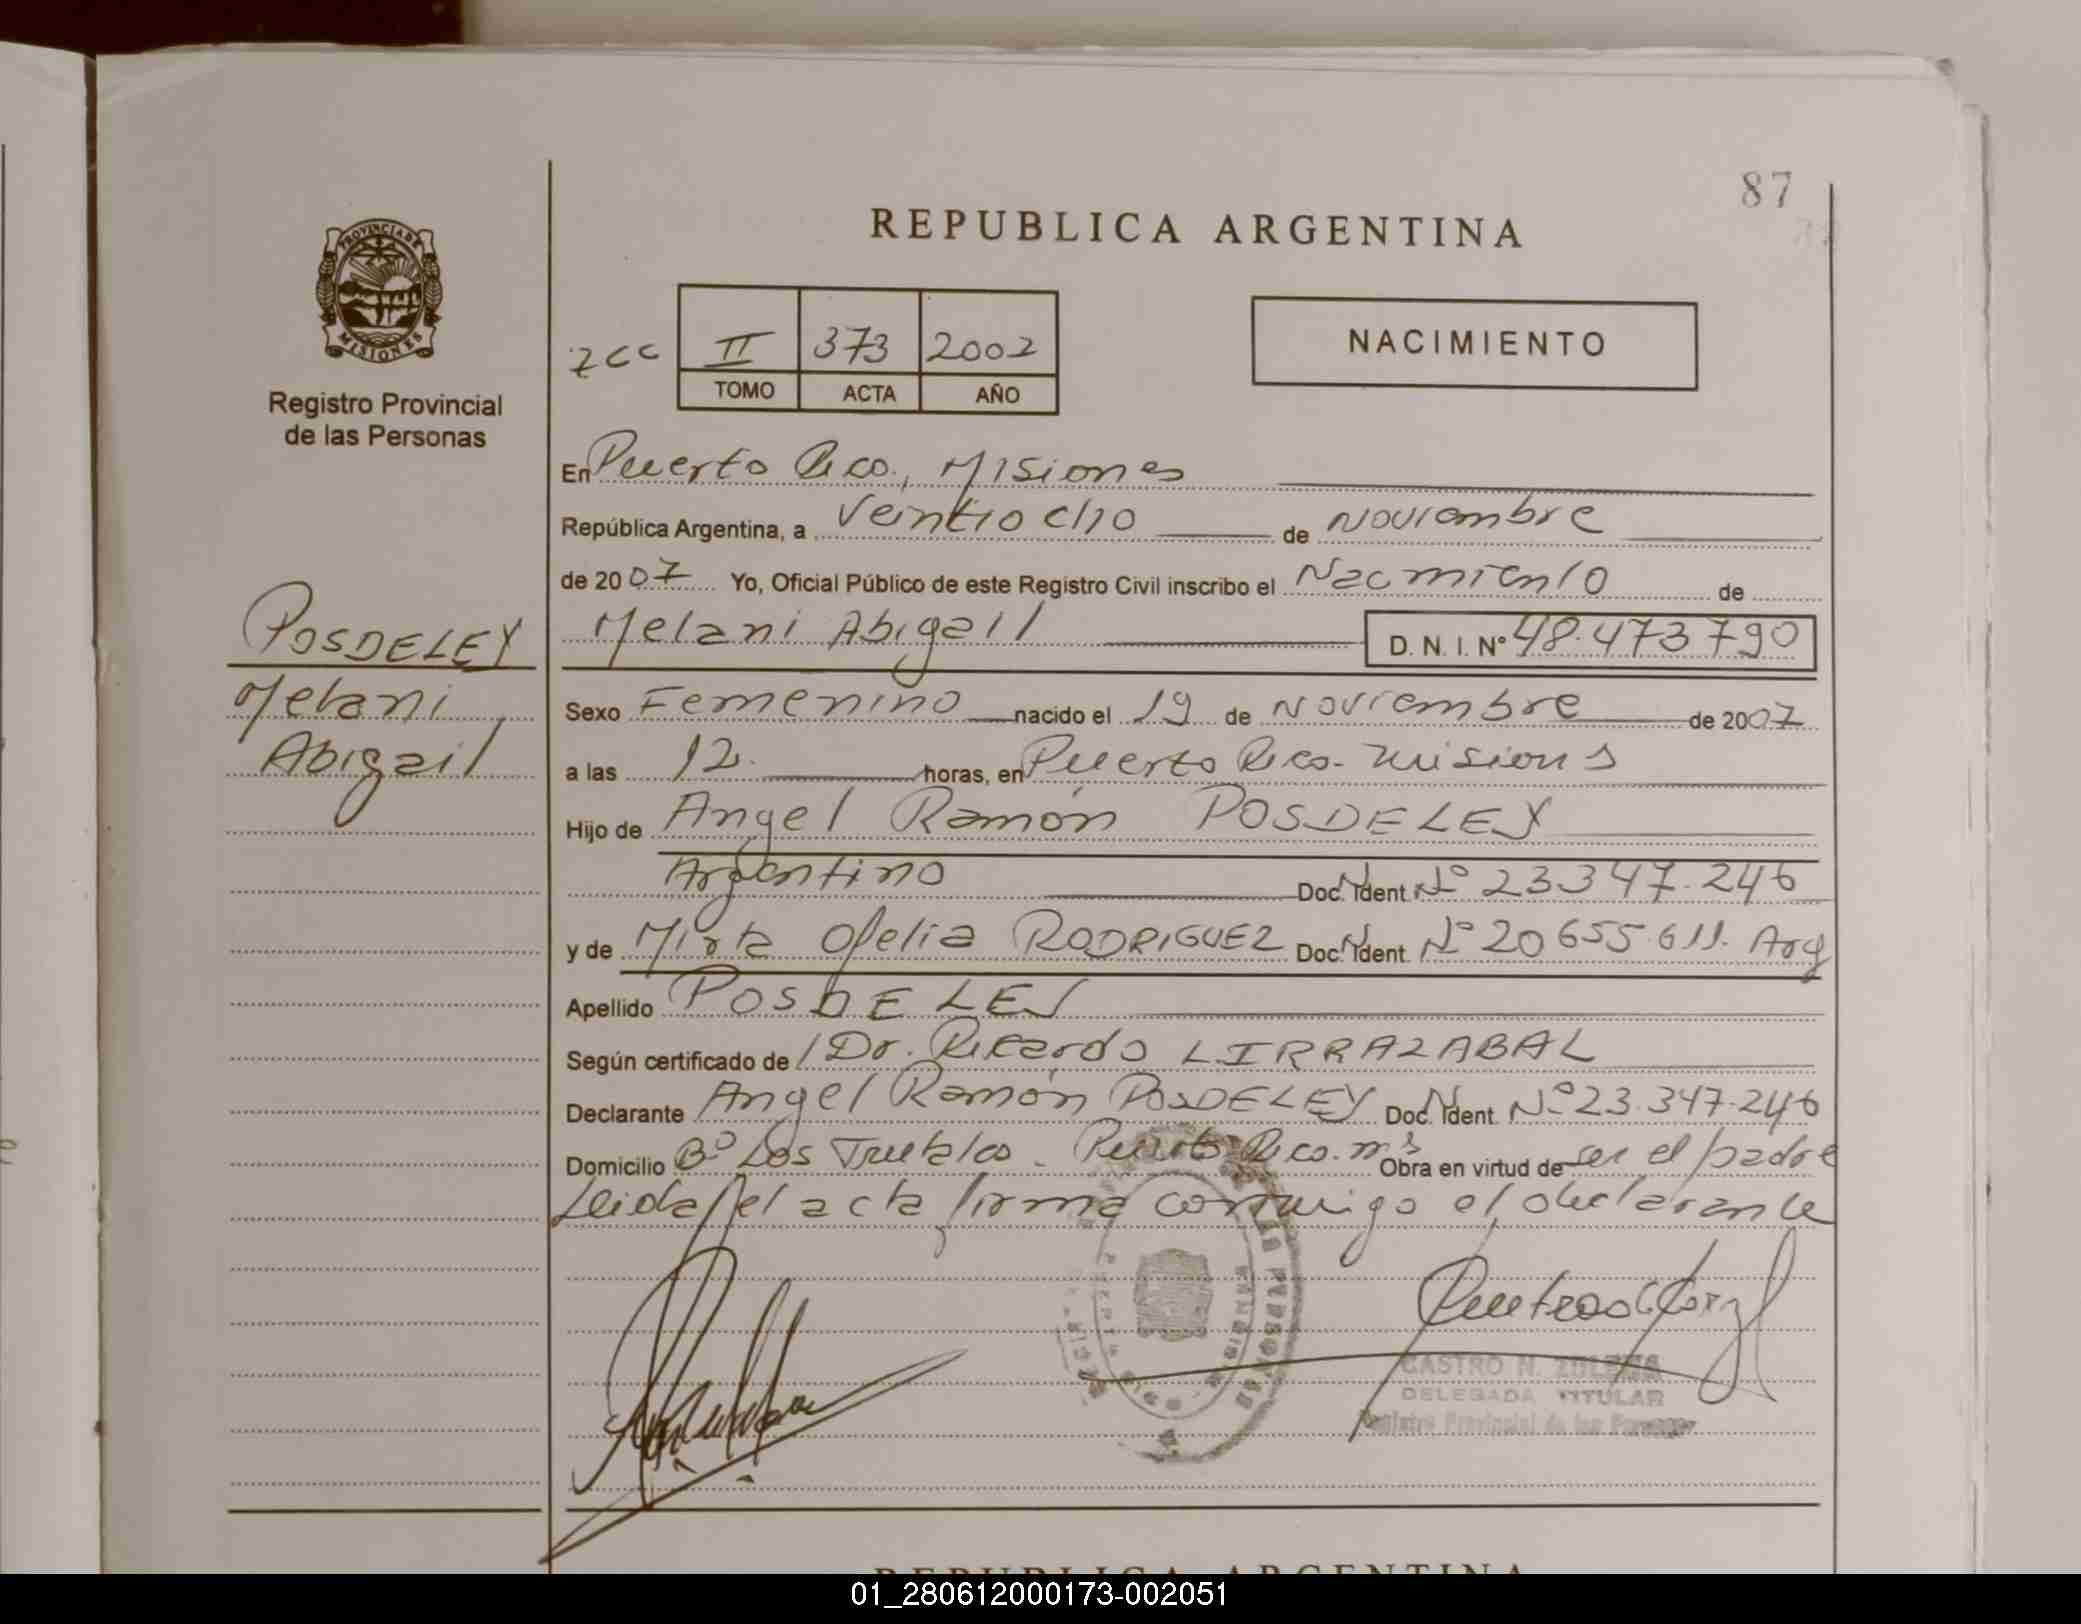 87
REPUBLICA ARGENTINA
PROVINCIA DE
MISIONES
Registro Provincial
de las Personas
zcc II 373 2002
TOMO ACTA AÑO
NACIMIENTO
En Puerto Rico, Misiones
República Argentina, a Veintiocho de Noviembre
de 2007 Yo, Oficial Público de este Registro Civil inscribo el Nacimiento de
Melani Abigail D. N. I. Nº 48.473790
POSDELEY
Melani
Abigail
Sexo Femenino nacido el 19 de Noviembre de 2007
a las 12. horas, en Puerto Rico. Misions
Hijo de Angel Ramón POSDELEY
Argentino Doc. Ident. Nº 23347.246
y de Mirta Ofelia RODRIGUEZ Doc. Ident. Nº 20655.611. Arg
Apellido POSDELEY
Según certificado de Dr. Ricardo LIRRAZABAL
Declarante Angel Ramón POSDELEY Doc. Ident. Nº 23.347.246
Domicilio Bº Los Puerto Rico. Ms Obra en virtud de ser el padre
Leida el acta firma conmigo el declarante
CASTRO N. ZULEMA
DELEGADA TITULAR
Registro Provincial de las Personas
REPUBLICA ARGENTINA
01_280612000173-002051